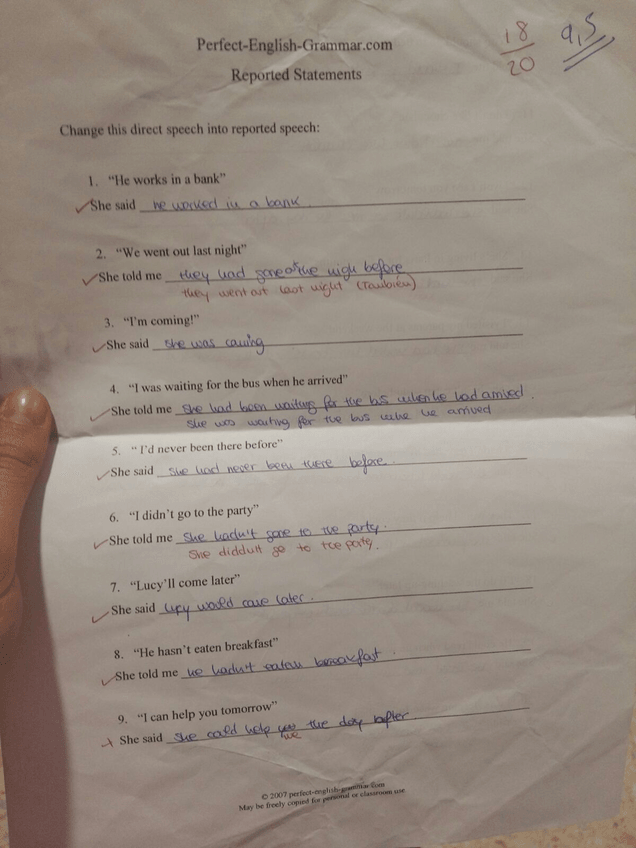 18
20
9,5
Perfect-English-Grammar.com
Reported Statements
Change this direct speech into reported speech:
1. “He works in a bank”
She said he worked in a bank.
2. “We went out last night”
She told me they had gone the nigh before
they went out last night (También)
3. “I'm coming!”
She said she was coming
4. “I was waiting for the bus when he arrived”
She told me she had been waiting for the bus when he had arrived.
she was waiting for the bus he arrived
5. “I'd never been there before”
She said she had never been there before.
6. “I didn't go to the party”
She told me she hadn't gone to the party.
She didn't go to the party.
7. “Lucy'll come later”
She said Lucy would come later.
8. “He hasn't eaten breakfast”
She told me he hadn't eaten breakfast.
9. “I can help you tomorrow”
She said she could help you the day after.
me
© 2007 perfect-english-grammar.com
May be freely copied for personal or classroom use